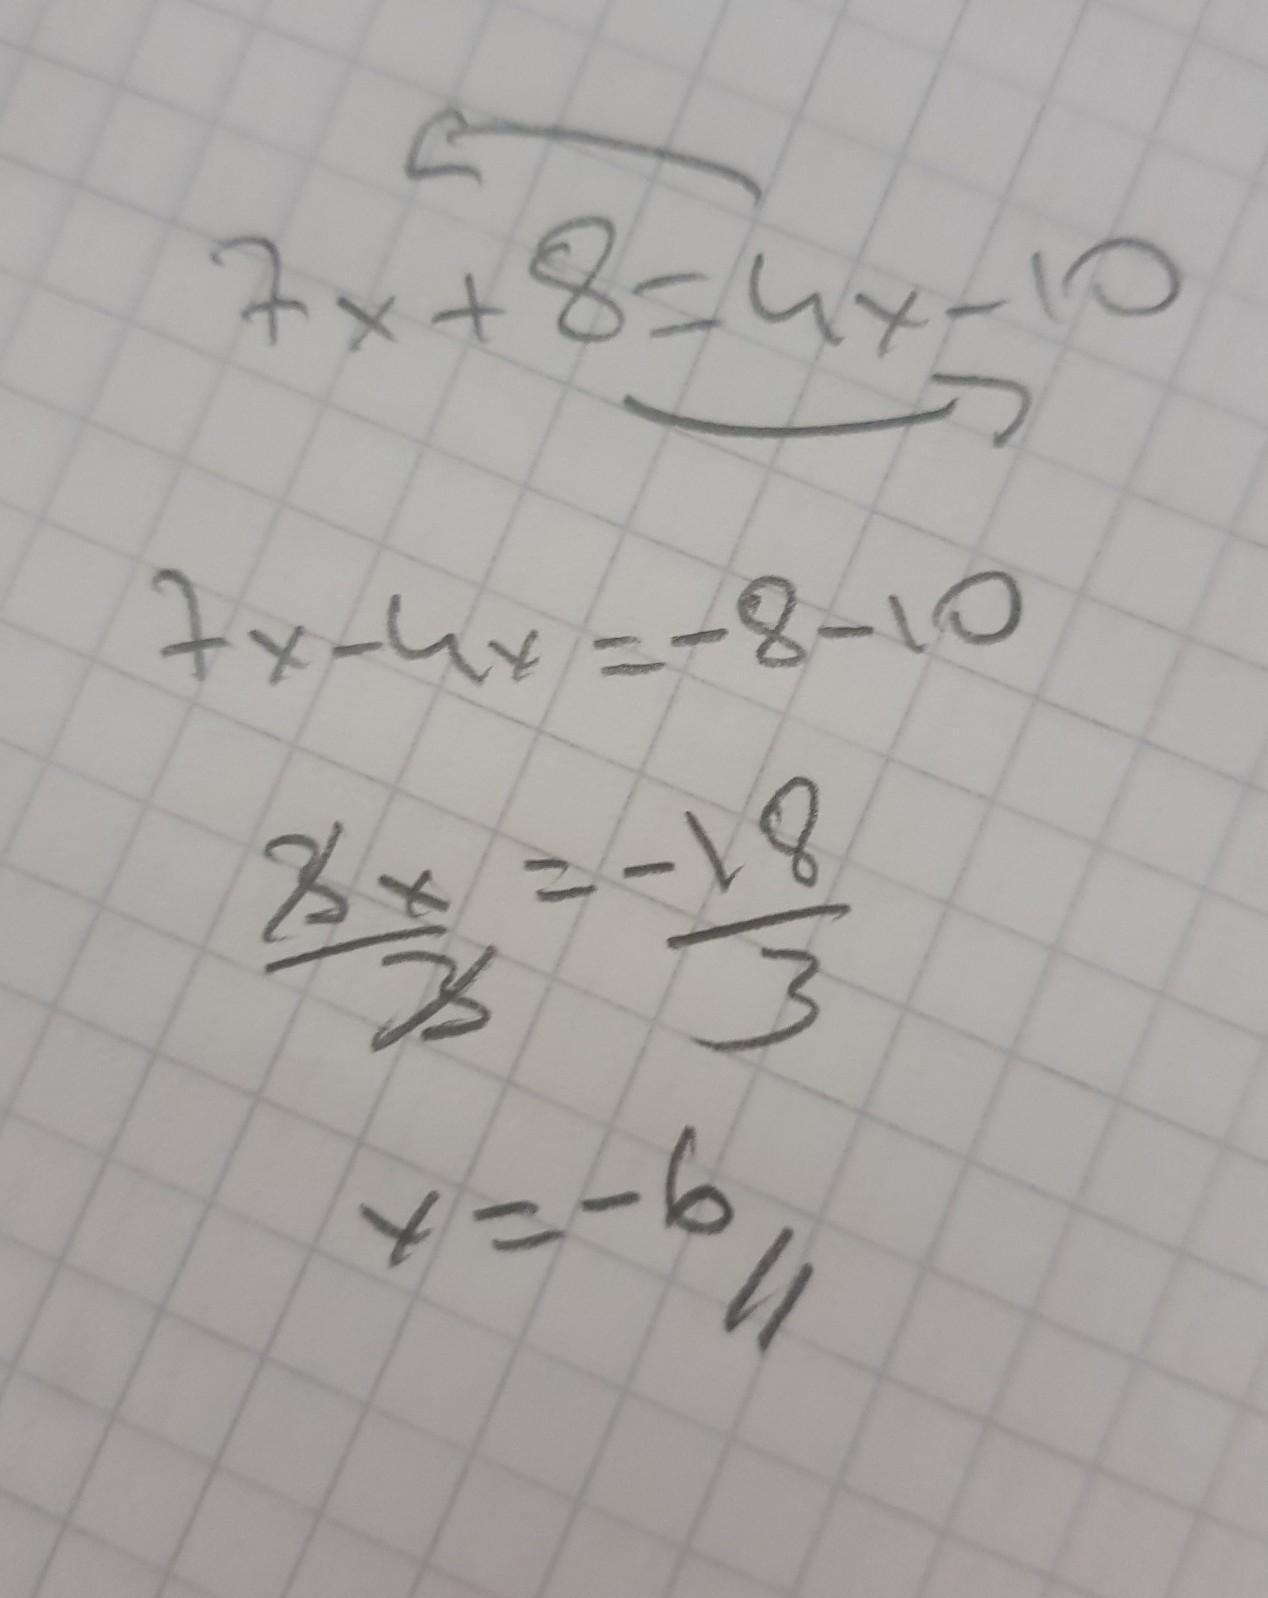 7x+8=4x-10
7x-4x=-8-10
3x/3=-18/3
x=-6//